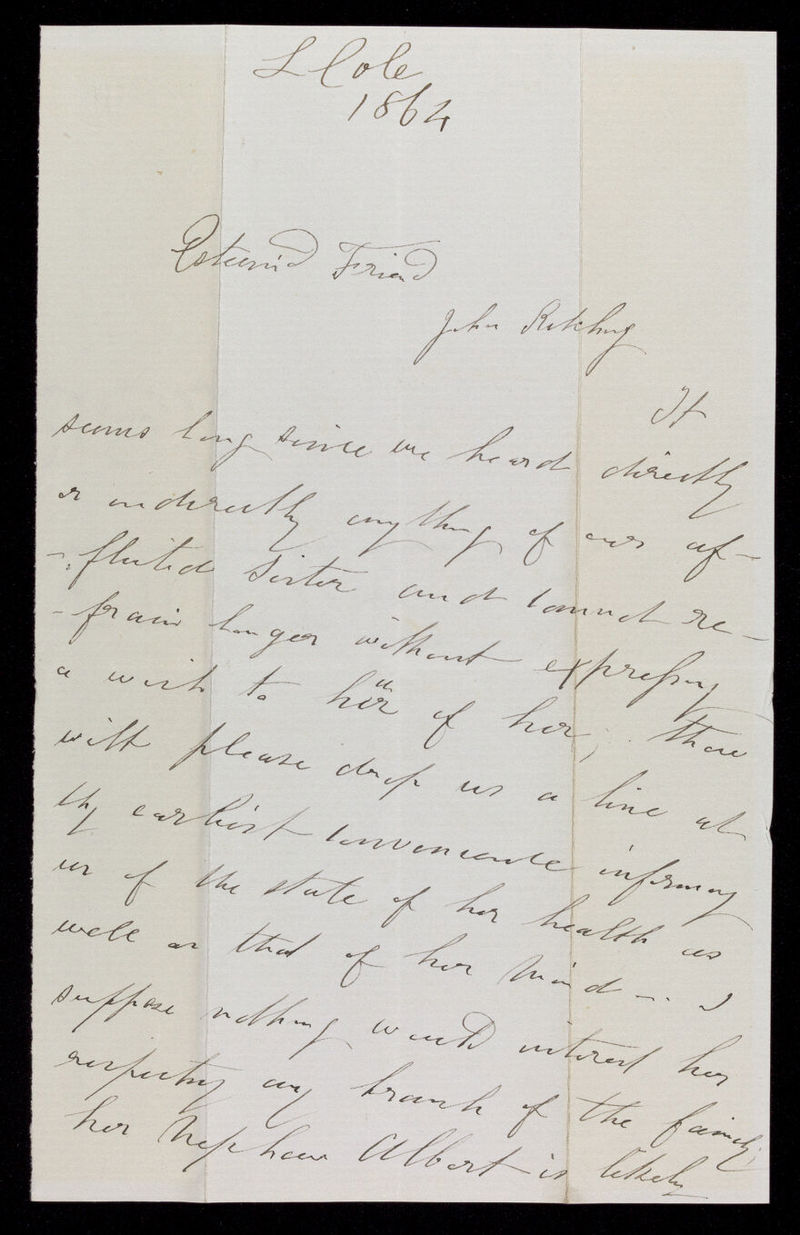 L Cole
1864
Esteem'd Friend
John
It
seems long since we heard directly
or indirectly anything of our af-
-flicted sister and cannot re-
-frain longer without expressing
a wish to hear of her; thou
wilt please drop us a line at
thy earliest convenience informing
us of the state of her health as
well as that of her mind -- I
suppose nothing would interest her
respecting any branch of the family;
her Nephew Albert is likely